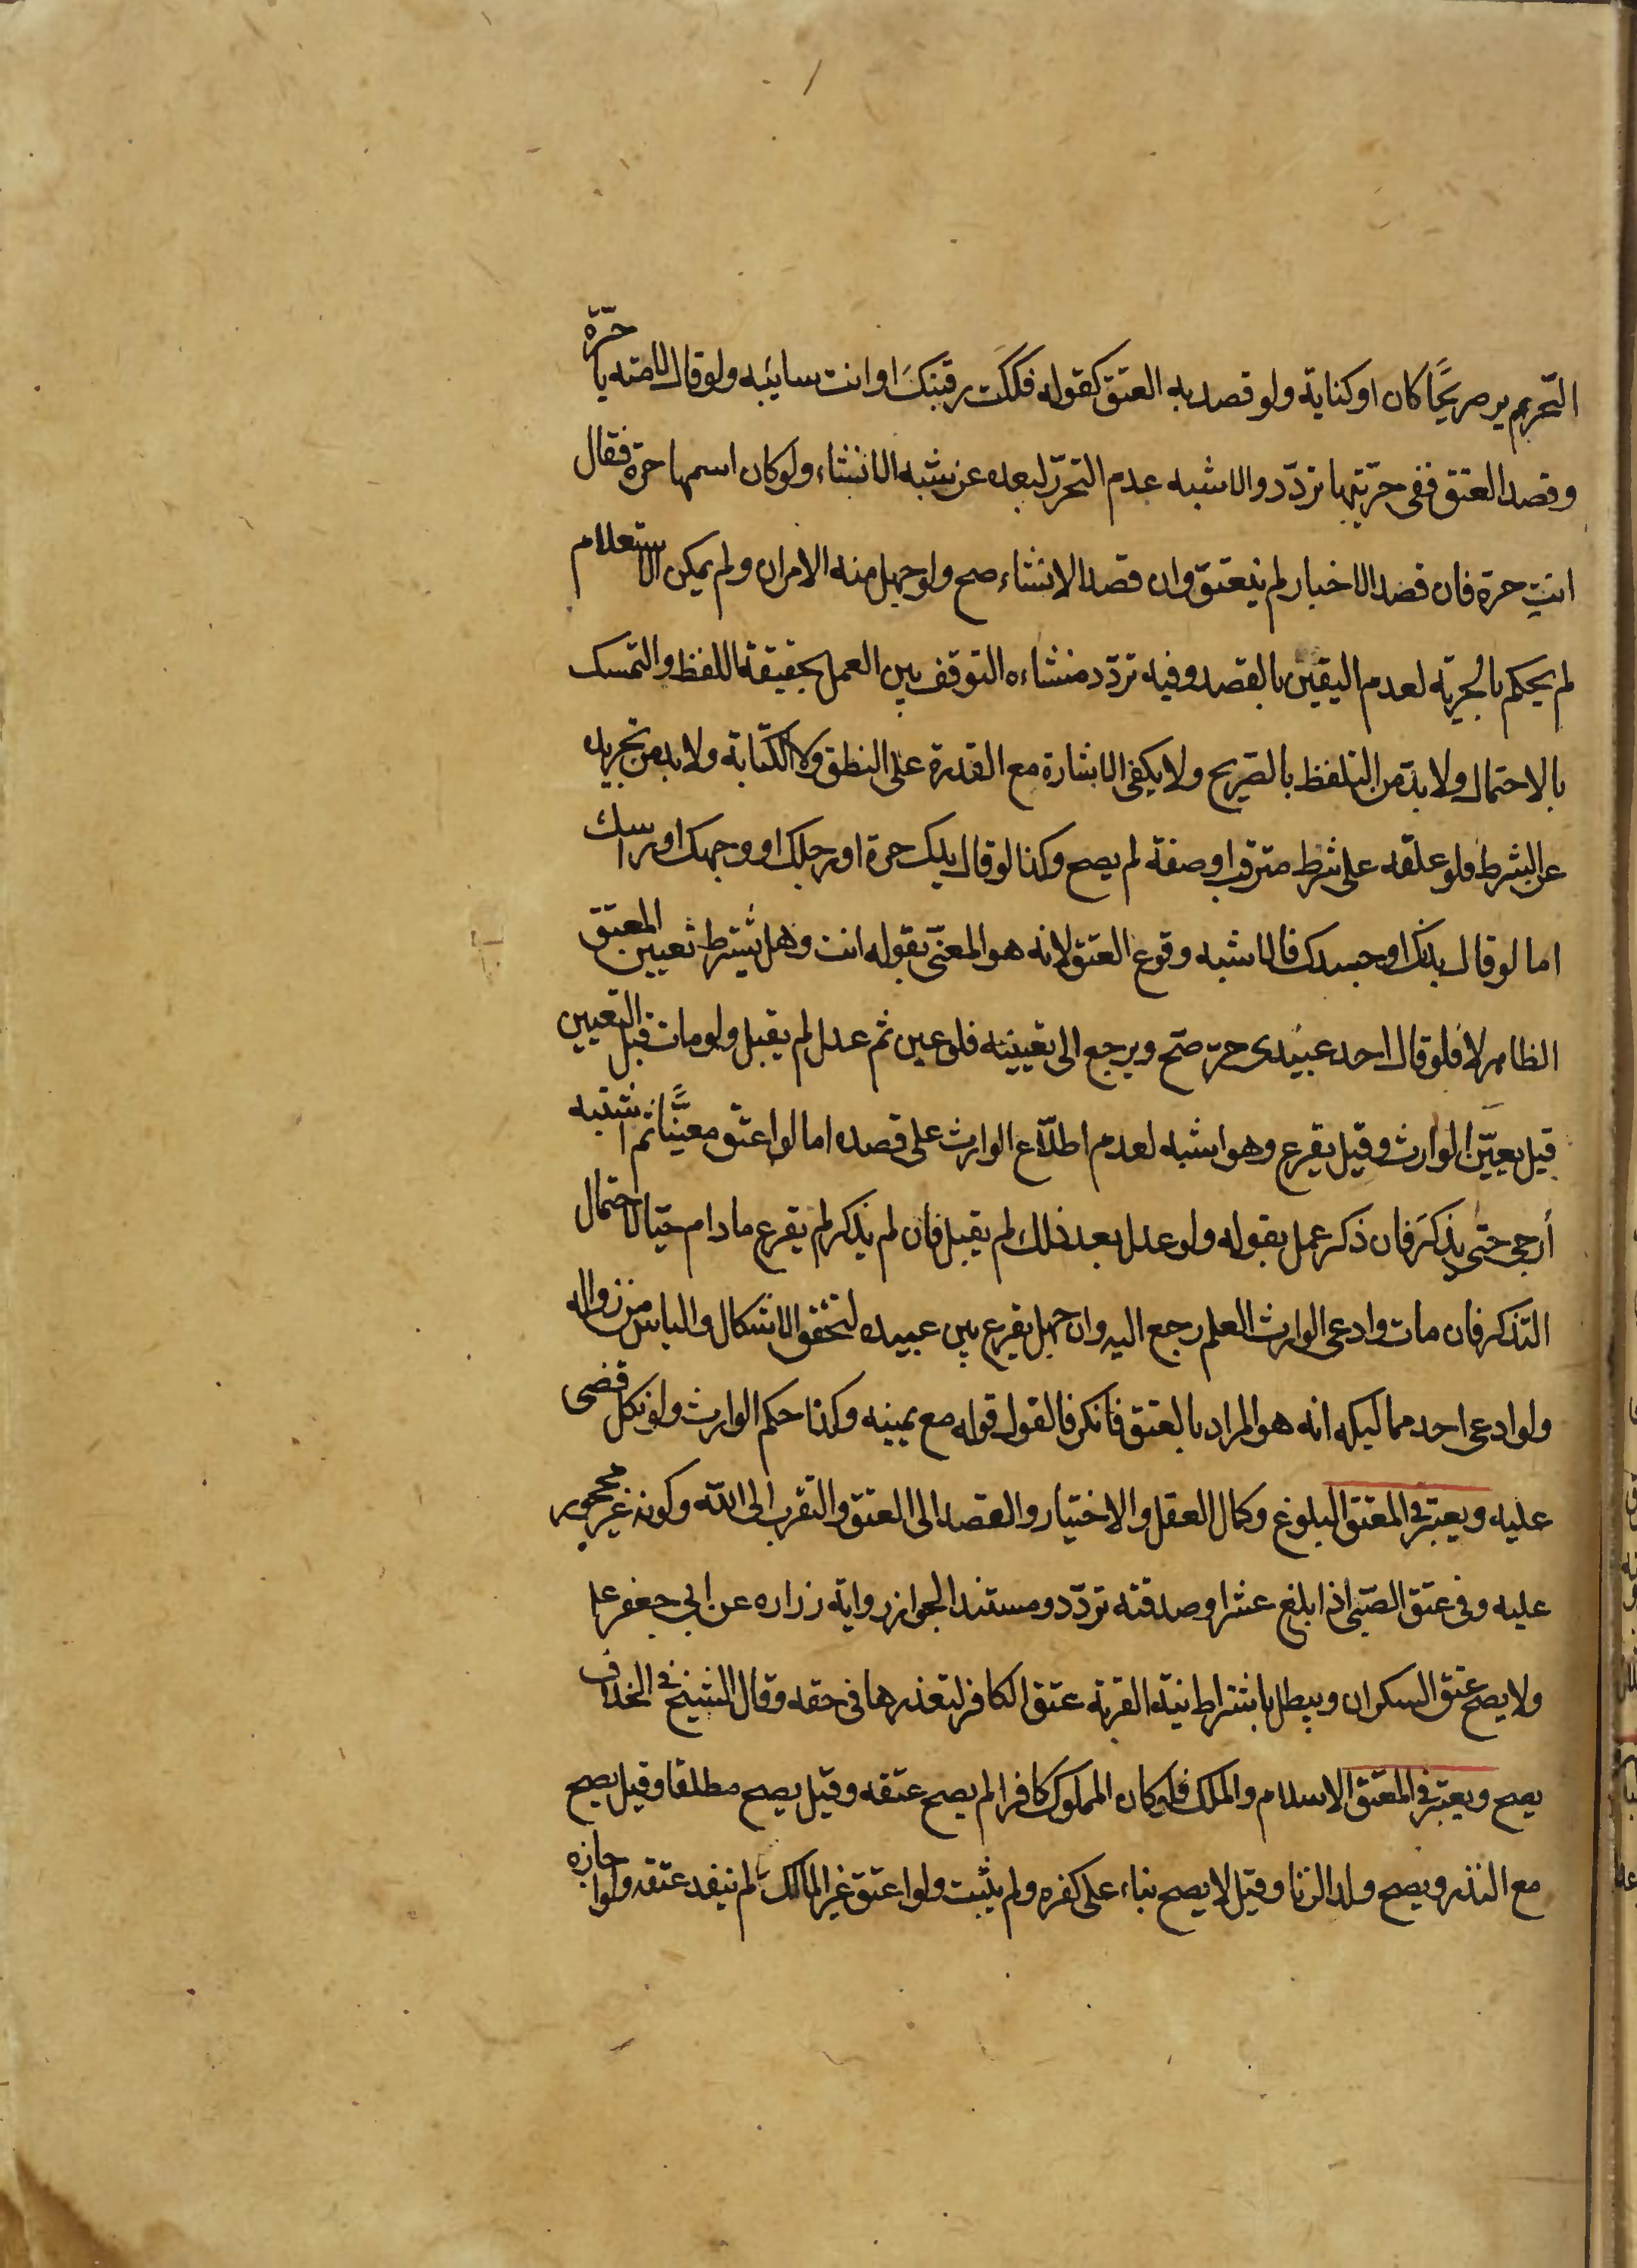 التحرير صريحًا كان او كناية ولو قصد به العتق كقوله فككت رقبتكَ او انت سايبه ولو قال لامته يا حرّة
وقصد العتق ففى حرّيتها تردّد والاشبه عدم التحرّر لبعده عن شبه الانشاء ولو كان اسمها حرة فقال
انتِ حرة فان قصد الاخبار لم ينعتق وان قصد الانشاء صح ولو جهل منه الامران ولم يمكن الاستعلام
لم يحكم بالحرية لعدم اليقين بالقصد وفيه تردّد منشاءه التوقف بين العمل بحقيقة اللفظ والتمسك
بالاحتمال ولا بدّ من التلفظ بالصريح ولا يكفى الاشارة مع القدرة على النطق ولا الكتابة ولا بد من تجريده
عن الشرط فلو علقه على شرط مترقب او صفة لم يصح وكذا لو قال يدك حرة او رجلك او وجهك او راسك
اما لو قال بدنك او جسدك فالاشبه وقوع العتق لانه هو المعنىّ بقوله انت وهل يشترط تعيين المعتق
الظاهر لا فلو قال احد عبيدى حرّ صحّ ويرجع الى تعيينه فلو عين ثم عدل لم يقبل ولو مات قبل التعيين
قيل يعيّن الوارث وقيل يقرع وهو اشبه لعدم اطلاع الوارث على قصده اما لو اعتق معيّنًا ثم اشتبه
أرجى حتى يذكرَ فان ذكر عمل بقوله ولو عدل بعد ذلك لم يقبل فان لم يذكر لم يقرع ما دام حيّا لاحتمال
التذكر فان مات وادعى الوارث العلم رجع اليه وان جهل يقرع بين عبيده لتحقق الاشكال والياس من زواله
ولو ادعى احد مماليكه انه هو المراد بالعتق فانكر فالقول قوله مع يمينه وكذا حكم الوارث ولو نكل قضى
عليه ويعتبر فى المعتق البلوغ وكمال العقل والاختيار والقصد الى العتق والتقرب الى الله وكونه غير محجور
عليه وفى عتق الصّبى اذا بلغ عشرا وصدقته تردّد ومستند الجواز رواية زراره عن ابى جعفر ع
ولا يصح عتق السكران ويبطل باشتراط نية القربة عتق الكافر لتعذرها فى حقه وقال الشيخ فى الخلاف
يصح ويعتبر فى المعتق الاسلام والملك فلو كان المملوك كافرا لم يصح عتقه وقيل يصح مطلقا وقيل يصح
مع النذر ويصح ولد الزنا وقيل لا يصح بناء على كفره ولم يثبت ولو اعتق غير المالك لم ينفد عتقه ولو اجازه